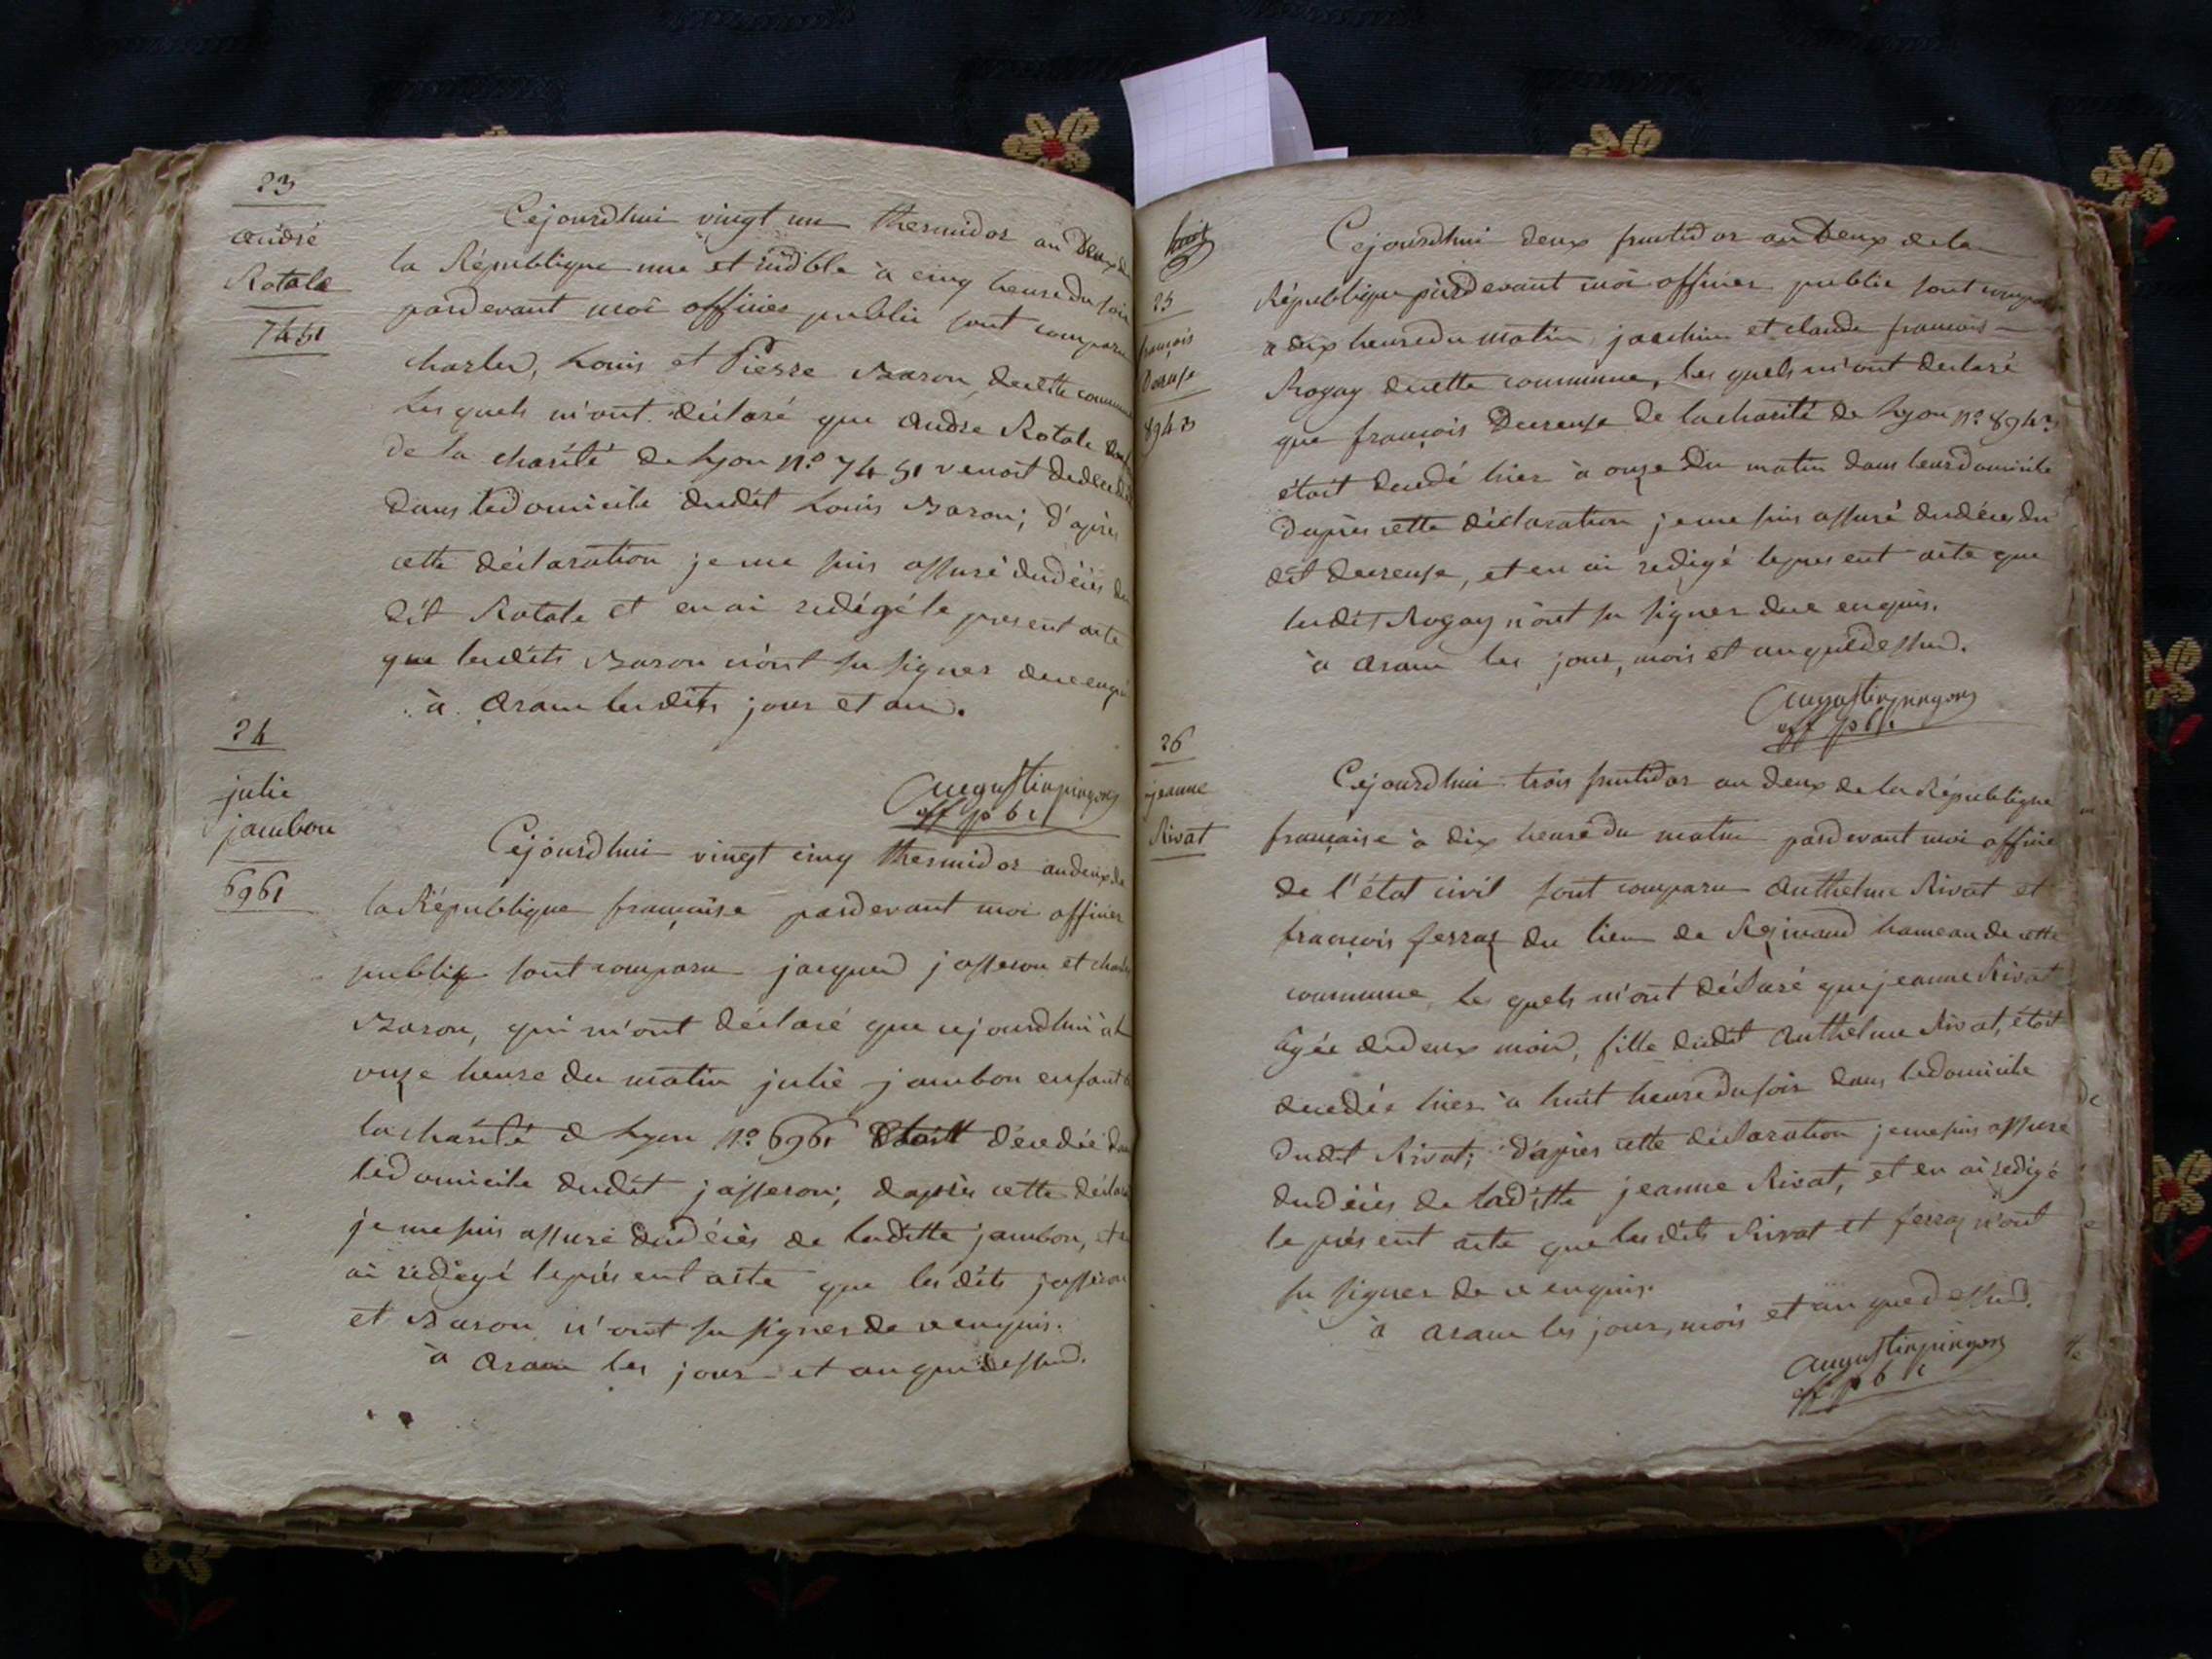 23
andré
Rotale
7451
Cejourdhui vingt un thermidor an Deux de
la République une et indble à cinq heure du soir
pardevant moi officier public sont comparu
charles, Louis et Pierre Baron, decette commune
Lesquels m'ont déclaré que andre Rotale
de la charité de Lyon n.o 7451 venoit dedeceder
dans ledomicile dudit Louis Baron; d'après
cette déclaration je me suis assuré dudécès du
dit Rotale et en ai redigé le present acte
que lesdits Baron n'ont su signer
à aram lesdits jour et an.
augustinpingon
off pbl
24
julie
jambon
6961
Cejourdhui vingt cinq thermidor andeux de
la République française pardevant moi officier
public sont comparu jacques josseron et charles
Baron, qui m'ont déclaré que cejourdhui à
onze heure du matin julie jambon enfant
la charité d Lyon n.o 6961 étoit décedée dans
ledomicile dudit josseron; daprès cette
je me suis assuré dudécès de laditte jambon, et
ai redigé leprésent acte que lesdits josseron
et Baron n'ont su signer de ce enquis.
à aram les jour et an que dessus.
25
françois
8943
Cejourdhui deux fructidor an Deux de la
République pardevant moi officier public sont comparu
à dix heure du matin, joachim et claude françois
Rogay decette commune, les quels m'ont declaré
que françois Decreuse de lacharité de Lyon n.o 8943
étoit decedé hier à onze du matin dans leurdomicile
Daprès cette déclaration je me suis assuré dudécès du
dit decreuse, et en ai redigé lepresent acte que
lesdits Rogay n'ont su signer dece enquis.
à aram les jour, mois et an quedessus.
augustinpingon
off pbl
26
jeanne
Rivat
Cejourdhui trois fructidor an deux de la République
française à dix heure du matin pardevant moi officier
de l'état civil sont comparu anthelme Rivat et
françois ferraz du lieu de hameau de cette
commune, les quels m'ont déclaré que jeanne Rivat
âgée dedeux mois, fille dudit anthelme Rivat, étoit
decedée hier à huit heure du soir dans ledomicile
dudit Rivat; d'après cette déclaration jemesuis assuré
dudécès de laditte jeanne Rivat, et en ai redigé
le présent acte que lesdits Rivat et ferraz n'ont
su signer de ce enquis.
à aram les jour, mois et an quedessus.
augustinpingon
off pbl